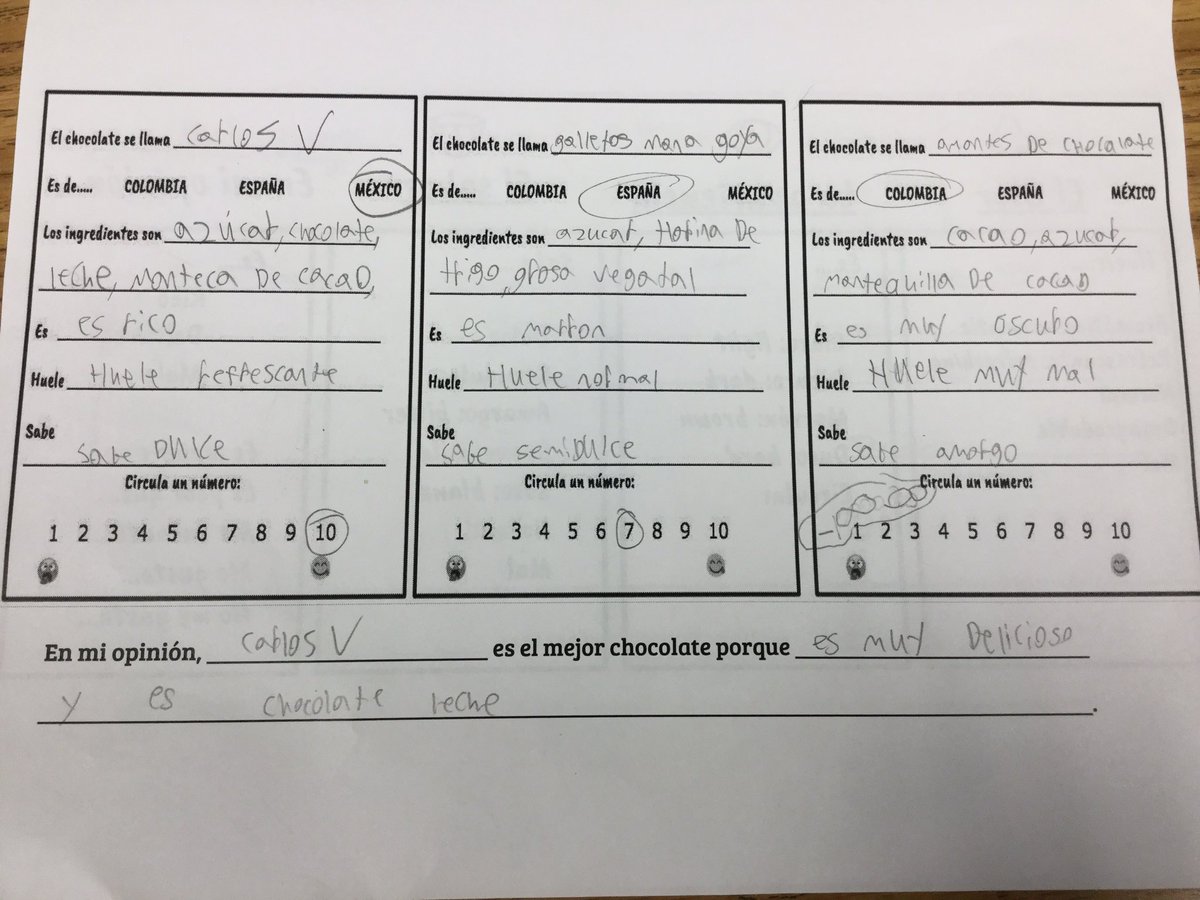 El chocolate se llama carlos V
Es de..... COLOMBIA ESPAÑA MÉXICO
Los ingredientes son azúcar, chocolate,
leche, manteca De cacao,
Es es rico
Huele Huele refrescante
Sabe
sabe Dulce
Circula un número:
1 2 3 4 5 6 7 8 9 10
El chocolate se llama galletas maria goya
Es de..... COLOMBIA ESPAÑA MÉXICO
Los ingredientes son azucar, Harina De
trigo, grasa vegatal
Es es marron
Huele Huele normal
Sabe
sabe semiDulce
Circula un número:
1 2 3 4 5 6 7 8 9 10
El chocolate se llama amantes De chocolate
Es de..... COLOMBIA ESPAÑA MÉXICO
Los ingredientes son cacao, azucar,
mantequilla De cacao
Es es muy oscuro
Huele Huele muy mal
Sabe
sabe amargo
Circula un número:
1 2 3 4 5 6 7 8 9 10
En mi opinión, carlos V es el mejor chocolate porque es muy Delicioso
y es chocolate leche.